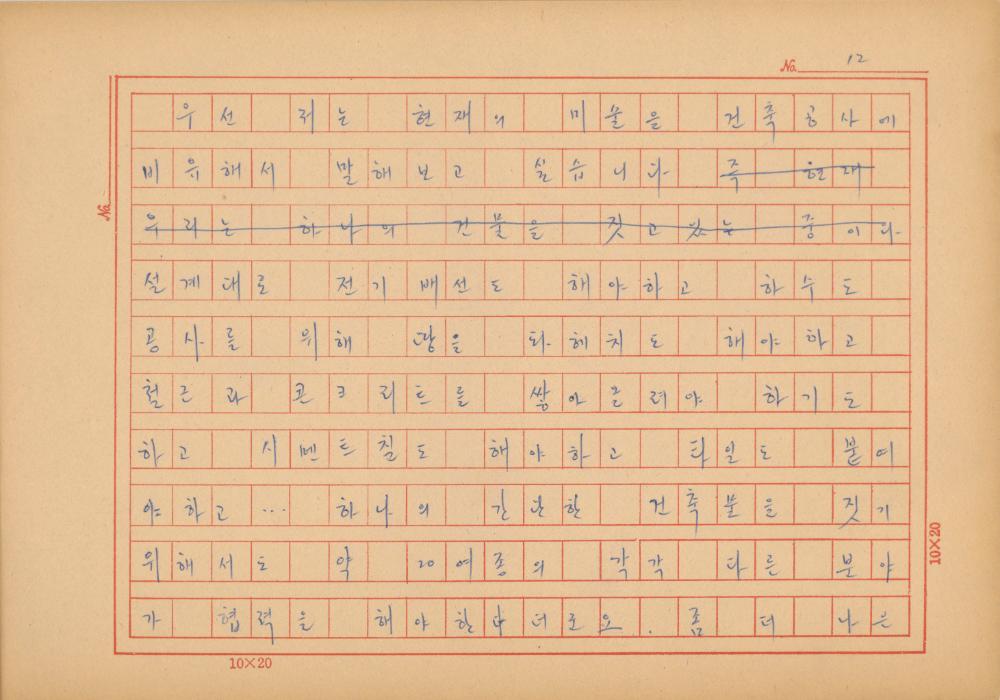 No. 12
우선 저는 현재의 미술을 건축공사에
비유해서 말해보고 싶습니다 즉 현재
우리는 하나의 건물을 짓고 있는 중이다.
설계대로 전기 배선도 해야하고 하수도
공사를 위해 땅을 파헤치도 해야하고
철근과 콘크리트를 쌓아올려야 하기도
하고 시멘트칠도 해야하고 타일도 붙여
야하고 … 하나의 간단한 건축물을 짓기
위해서도 약 20여종의 각각 다른 분야
가 협력을 해야한다더로요. 좀 더 나은
No.
10×20
10×20